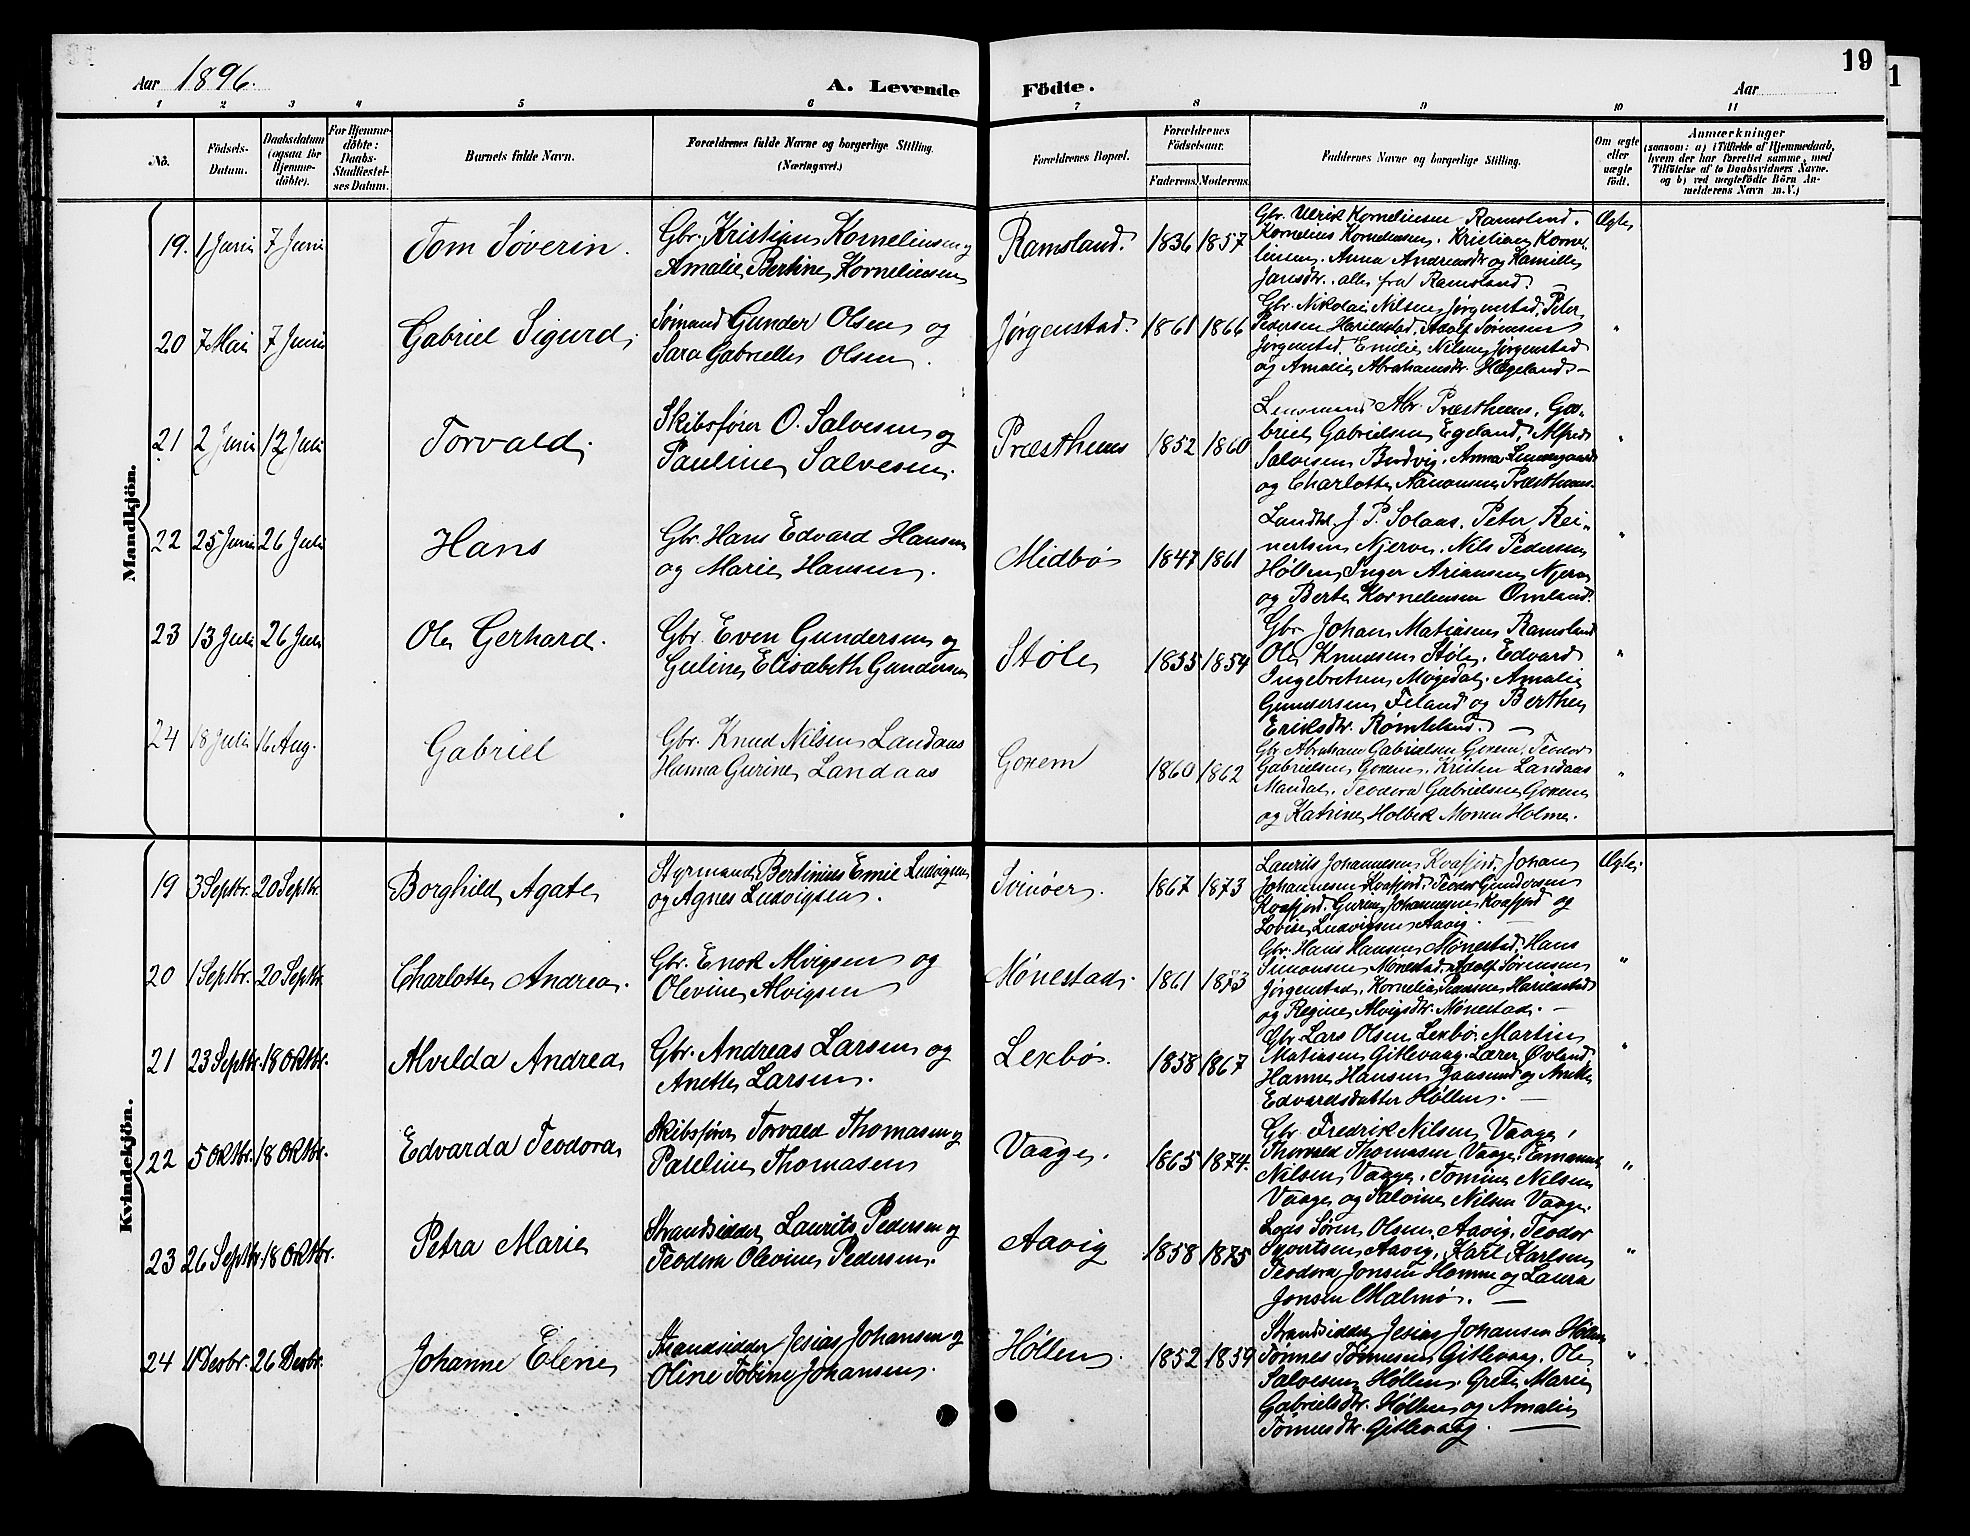 19
Aar 1896.
A. Levende Födte.
Aar
1 2 3 4 5 6 7 8 9 10 11
No. Födsels-Datum. Daabsdatum (ogsaa for Hjemme-döbte). For Hjemme-döbte: Daabs-Stadfæstel-ses Datum. Barnets fulde Navn. Forældrenes fulde Navne og borgerlige Stilling. (Næringsvei.) Forældrenes Bopæl. Forældrenes Födselsaar. Faderens. Moderens. Faddernes Navne og borgerlige Stilling. Om ægte eller uægte födt. Anmærkninger
(saasom: a) i Tilfælde af Hjemmedaab, hvem der har forrettet samme, med Tilföielse af to Daabsvidners Navne. og b) ved uægtefödte Börn An-melderens Navn m.V.)
Mandkjön.
19. 1 Juni 7 Juni Tom Söverin. Gbr. Kristian Korneliusen og
Amalie Bertine Korneliusen Ramsland. 1836 1857
Gbr. Ulrik Korneliusen Ramsland.
Kornelius Korneliusen. Kristian Korne-
liusen. Anna Andreasdtr og Kamilla
Jansdtr. alle fra Ramsland.
Ægte
20 7 Mai 7 Juni Gabriel Sigurd. Sømand Gunder Olsen og
Sara Gabrielle Olsen. Jørgenstad. 1861 1866
Gbr. Nikolai Nilsen Jørgenstad, Peter
Pedersen Harildstad, Adolf Sørensen
Jørgenstad, Emilie Nilsen Jørgenstad
og Amalie Abrahamsdtr. Hægeland. —
"
21 2 Juni 12 Juli Torvald. Skibsfører O. Salvesen og
Pauline Salvesen. Præsthem 1852 1860
Lensmand Abr. Præsthem. Ga-
briel Gabrielsen Egeland, Alfred
Salvesen Anna
og Charlotte Præsthem.
"
22 25 Juni 26 Juli Hans Gbr. Hans Edvard Hansen
og Marie Hansen. Midbø 1847 1861
Landhl. J. P. Solaas. Peter Rei-
nertsen Njerve. Nils Pedersen
Høllen, Inger Ariansen Njerve
og Berte Korneliusen Omland.
"
23 13 Juli 26 Juli Ole Gerhard. Gbr. Even Gundersen og
Guline Elisabeth Gundersen Støle 1855 1854
Gbr. Johan Matiasen Ramsland
Ole Knudsen Støle. Edvard
Ingebretsen Møgedal. Amalie
Gundersen Feland og Berthe
Eriksdtr. Rømteland. —
"
24 18 Juli 16 Aug. Gabriel Gbr. Knud Nilsen Landaas
Hanna Gurine Landaas Goxem 1860 1862
Gbr. Abraham Gabrielsen Goxem, Teodor
Gabrielsen Goxem. Kristen Landaas
Mandal. Teodora Gabrielsen Goxem
og Katrine Holbek Monen Holme.
"
Kvindekjön.
19 3 Septbr. 20 Septbr. Borghild Agate Styrmand Bertinius Emil Ludvigsen
og Agnes Ludvigsen. Svinøer. 1867 1873
Laurits Johannesen Kvafjord, Johan
Johannesen Kvafjord, Teodor Gundersen
Kvafjord. Gurine Johannesen Kvafjord og
Lovise Ludvigsen Aavig. —
Ægte.
20 1 Septbr. 20 Septbr. Charlotte Andrea. Gbr. Enok Alvigsen og
Olevine Alvigsen Mønestad. 1861 1873
Gbr. Hans Hansen Mønestad, Hans
Simonsen Mønestad, Adolf Sørensen
Jørgenstad, Kornelia Harildstad
og Regine Alvigsdtr. Mønestad. —
"
21 23 Septbr. 18 Oktbr. Alvilda Andrea Gbr. Andreas Larsen og
Anette Larsen. Lexbø. 1858 1867
Gbr. Lars Olsen Lexbø. Martin
Matiasen Gitlevaag. Lærer Øvland,
Hanne Hansen og Anette
Edvardsdatter Høllen. —
"
22 5 Oktbr. 18 Oktbr. Edvarda Teodora Skibsfører Torvald Thomasen og
Pauline Thomasen Vaage. 1865 1874.
Gbr. Fredrik Nilsen Vaage,
Thorvald Thomasen Vaage. Emanuel
Nilsen Vaage. Tomine Nilsen
Vaage og Salvine Nilsen Vaage.
"
23 26 Septbr. 18 Oktbr. Petra Marie Strandsidder Laurits Pedersen og
Teodora Olevine Pedersen. Aavig 1858 1875
Lods Søren Olsen Aavig, Teodor
Sivertsen Aavig. Karl Karlsen
Teodora Jonsen Homme og Laura
Jonsen Malmø. —
"
24 11 Decbr. 26 Decbr. Johanne Elene Strandsidder Jesias Johansen og
Oline Tobine Johansen. Høllen. 1852 1859
Strandsidder Jesias Johansen Høllen
Tønnes Tønnesen Gitlevaag. Ole
Salvesen Høllen. Grete Marie
Gabrielsdtr. Høllen og Amalie
Tønnesdtr. Gitlevaag. —
"